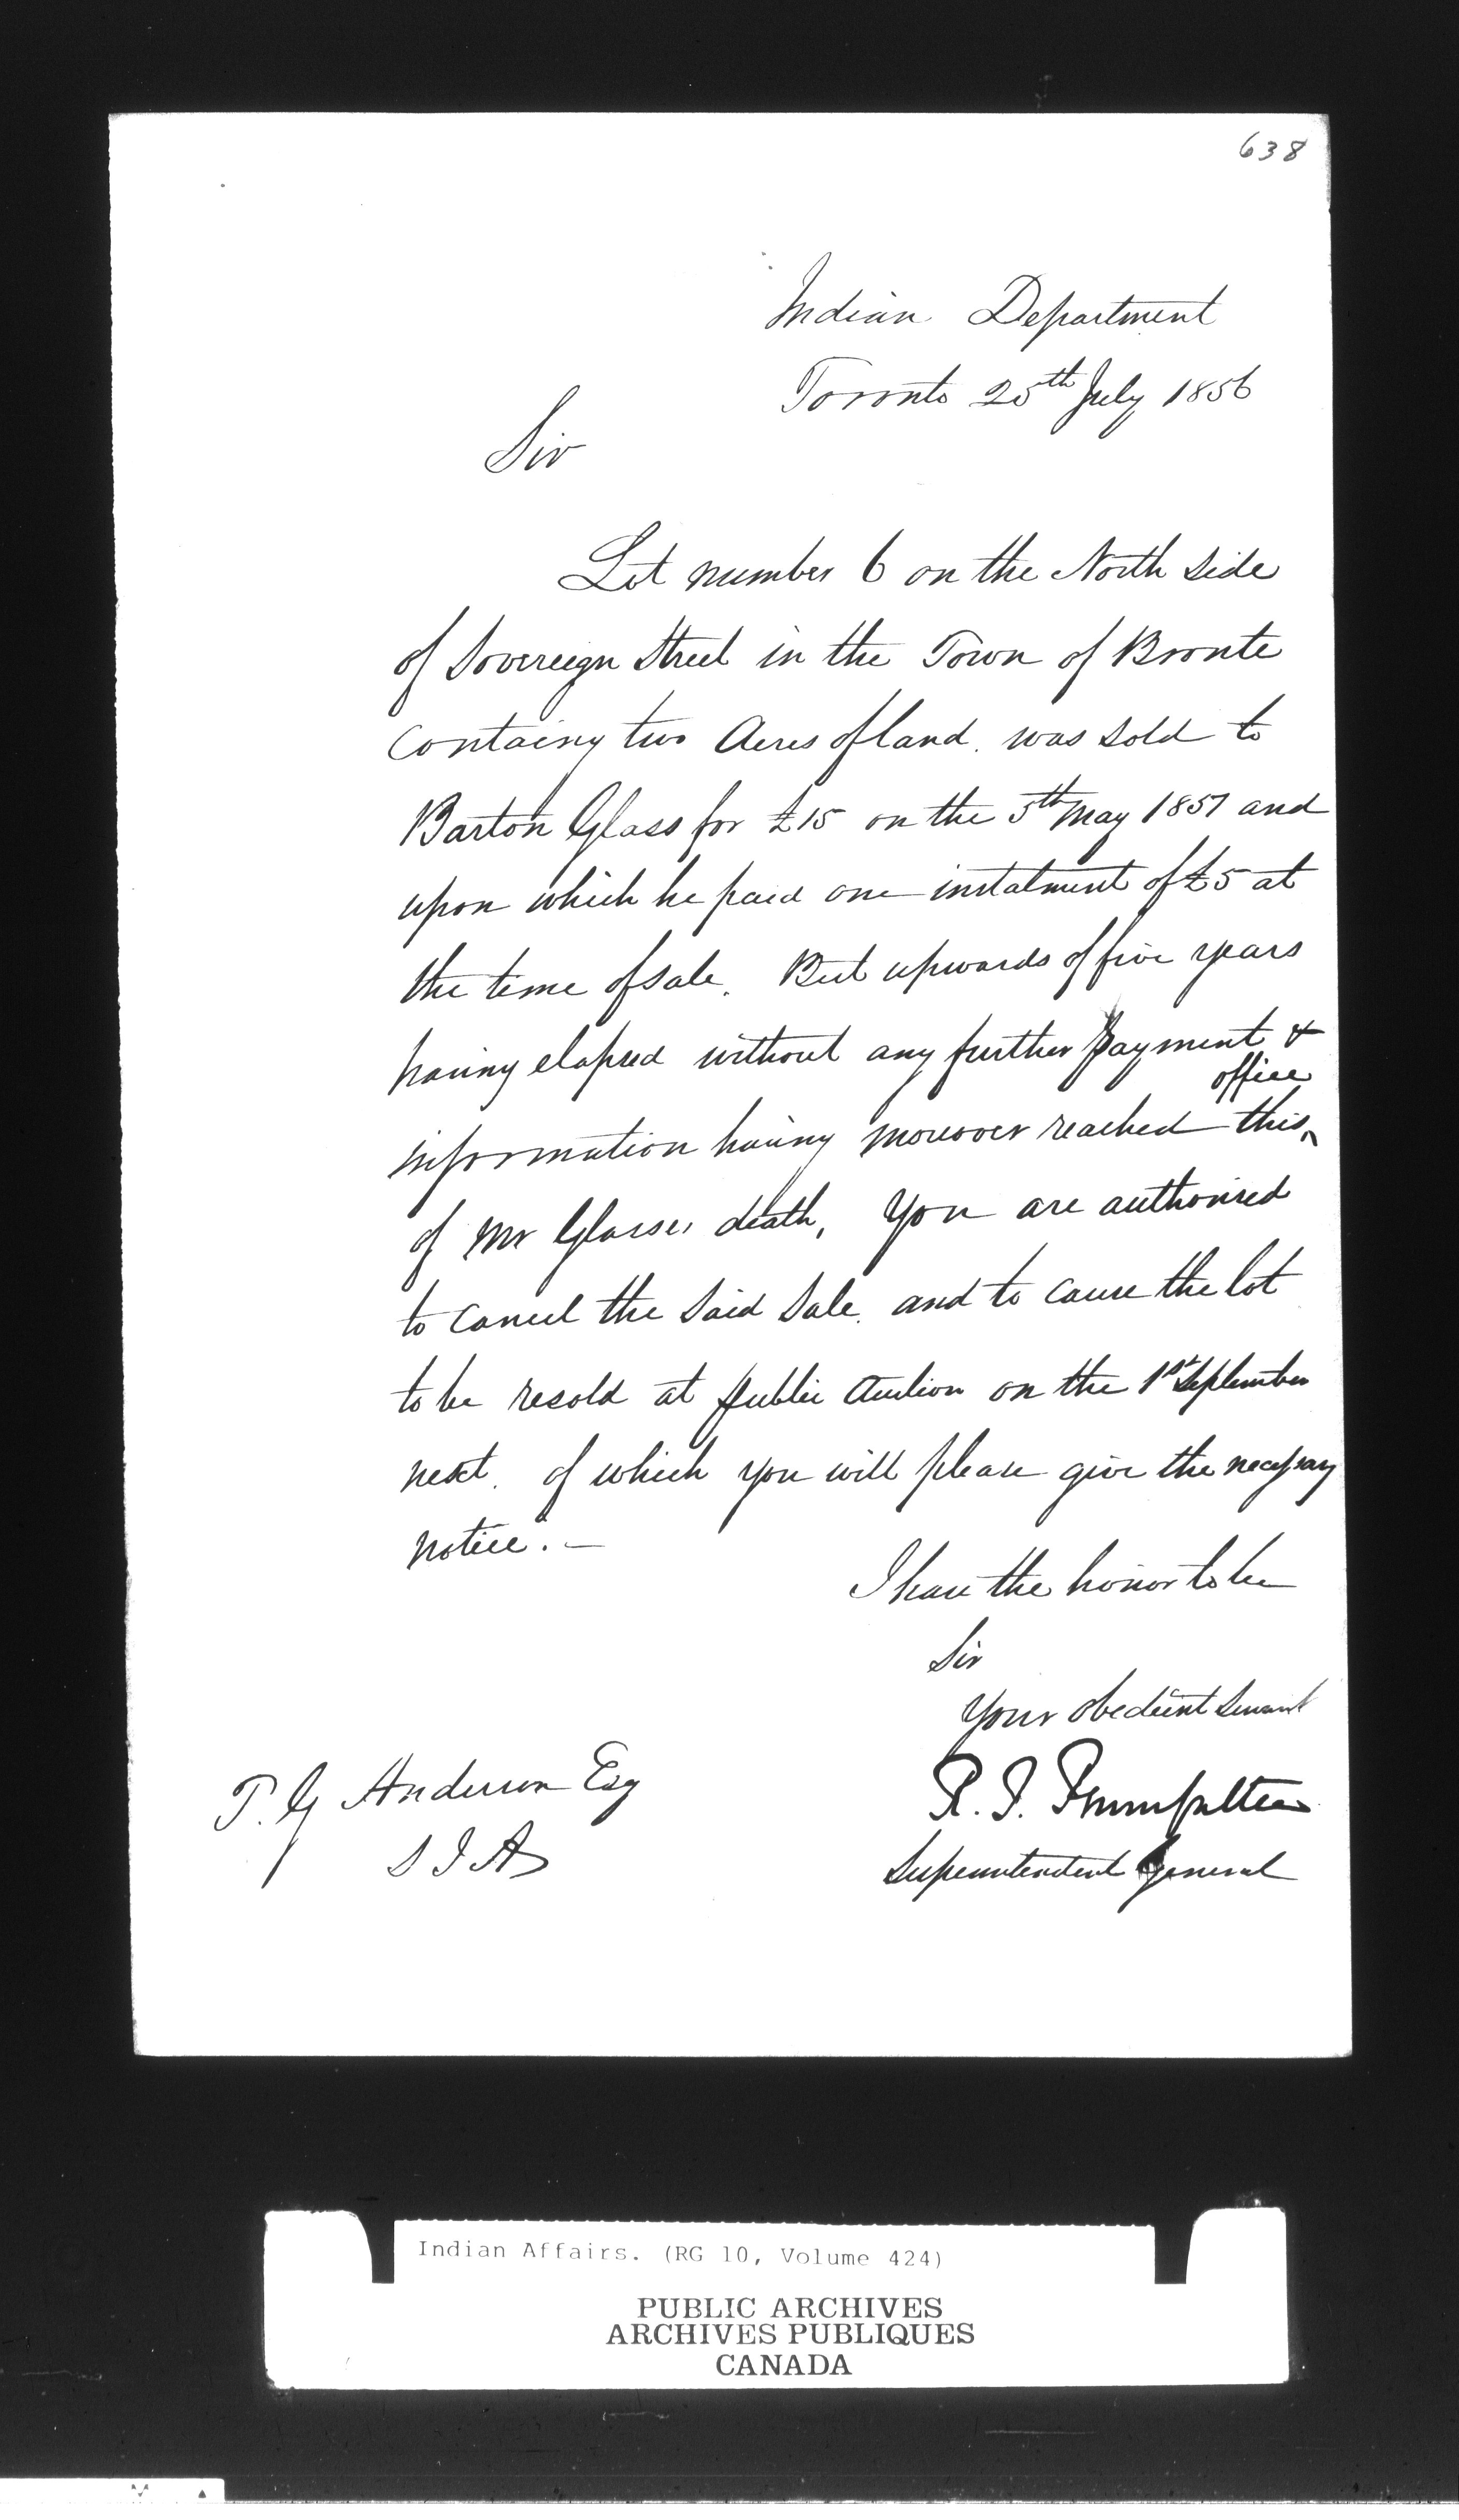 638
Indian Department
Toronto 25th July 1856
Sir
Lot number 6 on the North side
of Sovereign Street in the Town of Bronte
containg two Acres of land. was sold to
Barton Glass for £15 on the 5th May 1851 and
upon which he paid one instalment of £5 at
the time of sale. But upwards of five years
having elapsed without any further payment &
office
information having moreover reached this
of Mr Glasses death, You are authorised
to cancel the said sale. and to cause the lot
to be resold at public Auction on the 1st September
next. of which you will please give the necessary
notice. —
I have the honor to be
Sir
Your obedient servant
R. T. Pennefather
Superintendent General
T. G Anderson Esq
S I A
Indian Affairs. (RG 10, Volume 424)
PUBLIC ARCHIVES
ARCHIVES PUBLIQUES
CANADA